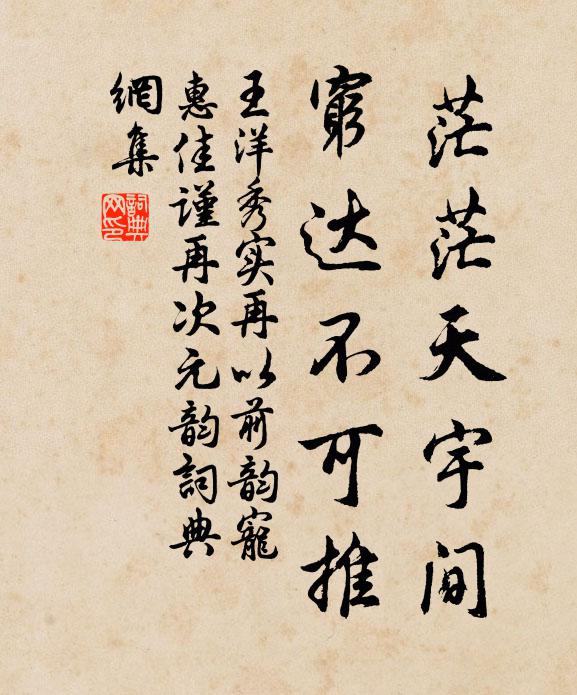 茫茫天宇间
窮达不可推
王洋秀实再以前韵寵
惠佳谨再次元韵詞典
網集
詞典
网印